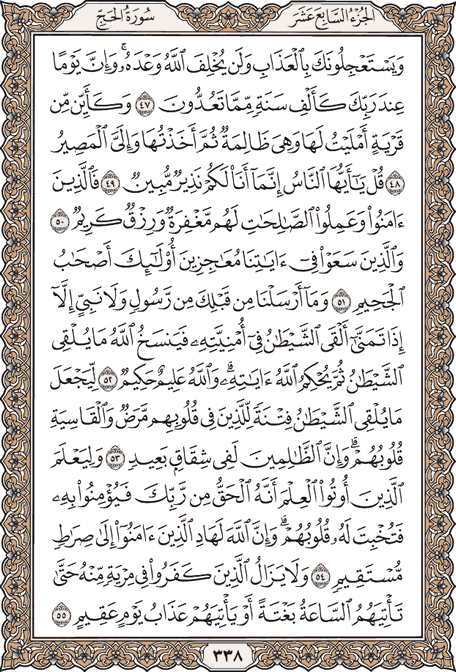 الجُزْءُ السَّابِعَ عَشَرَ
سُورَةُ الحَجِّ
وَيَسْتَعْجِلُونَكَ بِٱلْعَذَابِ وَلَن يُخْلِفَ ٱللَّهُ وَعْدَهُۥ ۚ وَإِنَّ يَوْمًا
عِندَ رَبِّكَ كَأَلْفِ سَنَةٍ مِّمَّا تَعُدُّونَ ٤٧ وَكَأَيِّن مِّن
قَرْيَةٍ أَمْلَيْتُ لَهَا وَهِىَ ظَالِمَةٌ ثُمَّ أَخَذْتُهَا وَإِلَىَّ ٱلْمَصِيرُ
٤٨ قُلْ يَٰٓأَيُّهَا ٱلنَّاسُ إِنَّمَآ أَنَا۠ لَكُمْ نَذِيرٌ مُّبِينٌ ٤٩ فَٱلَّذِينَ
ءَامَنُوا۟ وَعَمِلُوا۟ ٱلصَّٰلِحَٰتِ لَهُم مَّغْفِرَةٌ وَرِزْقٌ كَرِيمٌ ٥٠
وَٱلَّذِينَ سَعَوْا۟ فِىٓ ءَايَٰتِنَا مُعَٰجِزِينَ أُو۟لَٰٓئِكَ أَصْحَٰبُ
ٱلْجَحِيمِ ٥١ وَمَآ أَرْسَلْنَا مِن قَبْلِكَ مِن رَّسُولٍ وَلَا نَبِىٍّ إِلَّآ
إِذَا تَمَنَّىٰٓ أَلْقَى ٱلشَّيْطَٰنُ فِىٓ أُمْنِيَّتِهِۦ فَيَنسَخُ ٱللَّهُ مَا يُلْقِى
ٱلشَّيْطَٰنُ ثُمَّ يُحْكِمُ ٱللَّهُ ءَايَٰتِهِۦ ۗ وَٱللَّهُ عَلِيمٌ حَكِيمٌ ٥٢ لِّيَجْعَلَ
مَا يُلْقِى ٱلشَّيْطَٰنُ فِتْنَةً لِّلَّذِينَ فِى قُلُوبِهِم مَّرَضٌ وَٱلْقَاسِيَةِ
قُلُوبُهُمْ ۗ وَإِنَّ ٱلظَّٰلِمِينَ لَفِى شِقَاقٍۭ بَعِيدٍ ٥٣ وَلِيَعْلَمَ
ٱلَّذِينَ أُوتُوا۟ ٱلْعِلْمَ أَنَّهُ ٱلْحَقُّ مِن رَّبِّكَ فَيُؤْمِنُوا۟ بِهِۦ
فَتُخْبِتَ لَهُۥ قُلُوبُهُمْ ۗ وَإِنَّ ٱللَّهَ لَهَادِ ٱلَّذِينَ ءَامَنُوٓا۟ إِلَىٰ صِرَٰطٍ
مُّسْتَقِيمٍ ٥٤ وَلَا يَزَالُ ٱلَّذِينَ كَفَرُوا۟ فِى مِرْيَةٍ مِّنْهُ حَتَّىٰ
تَأْتِيَهُمُ ٱلسَّاعَةُ بَغْتَةً أَوْ يَأْتِيَهُمْ عَذَابُ يَوْمٍ عَقِيمٍ ٥٥
٣٣٨